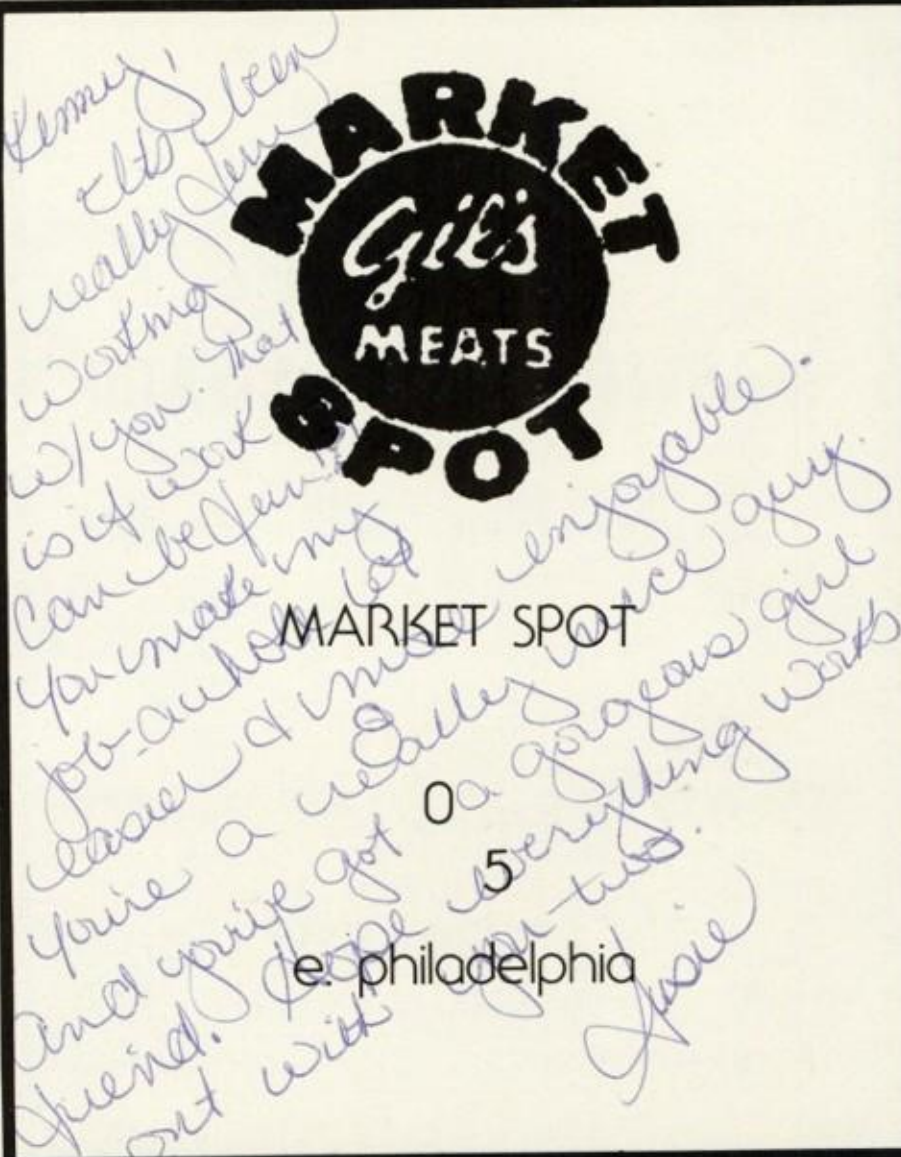 MARKET
Gil's
MEATS
SPOT
MARKET SPOT
0
5
e. philadelphia
Kenny,
It's been
really fun
working
w/you. That
is if work
can be fun!
You make my
job a whole lot
easier & more enjoyable.
You're a really nice guy.
And you've got a gorgeous girl
friend. Hope everything works
out with you two.
Susie